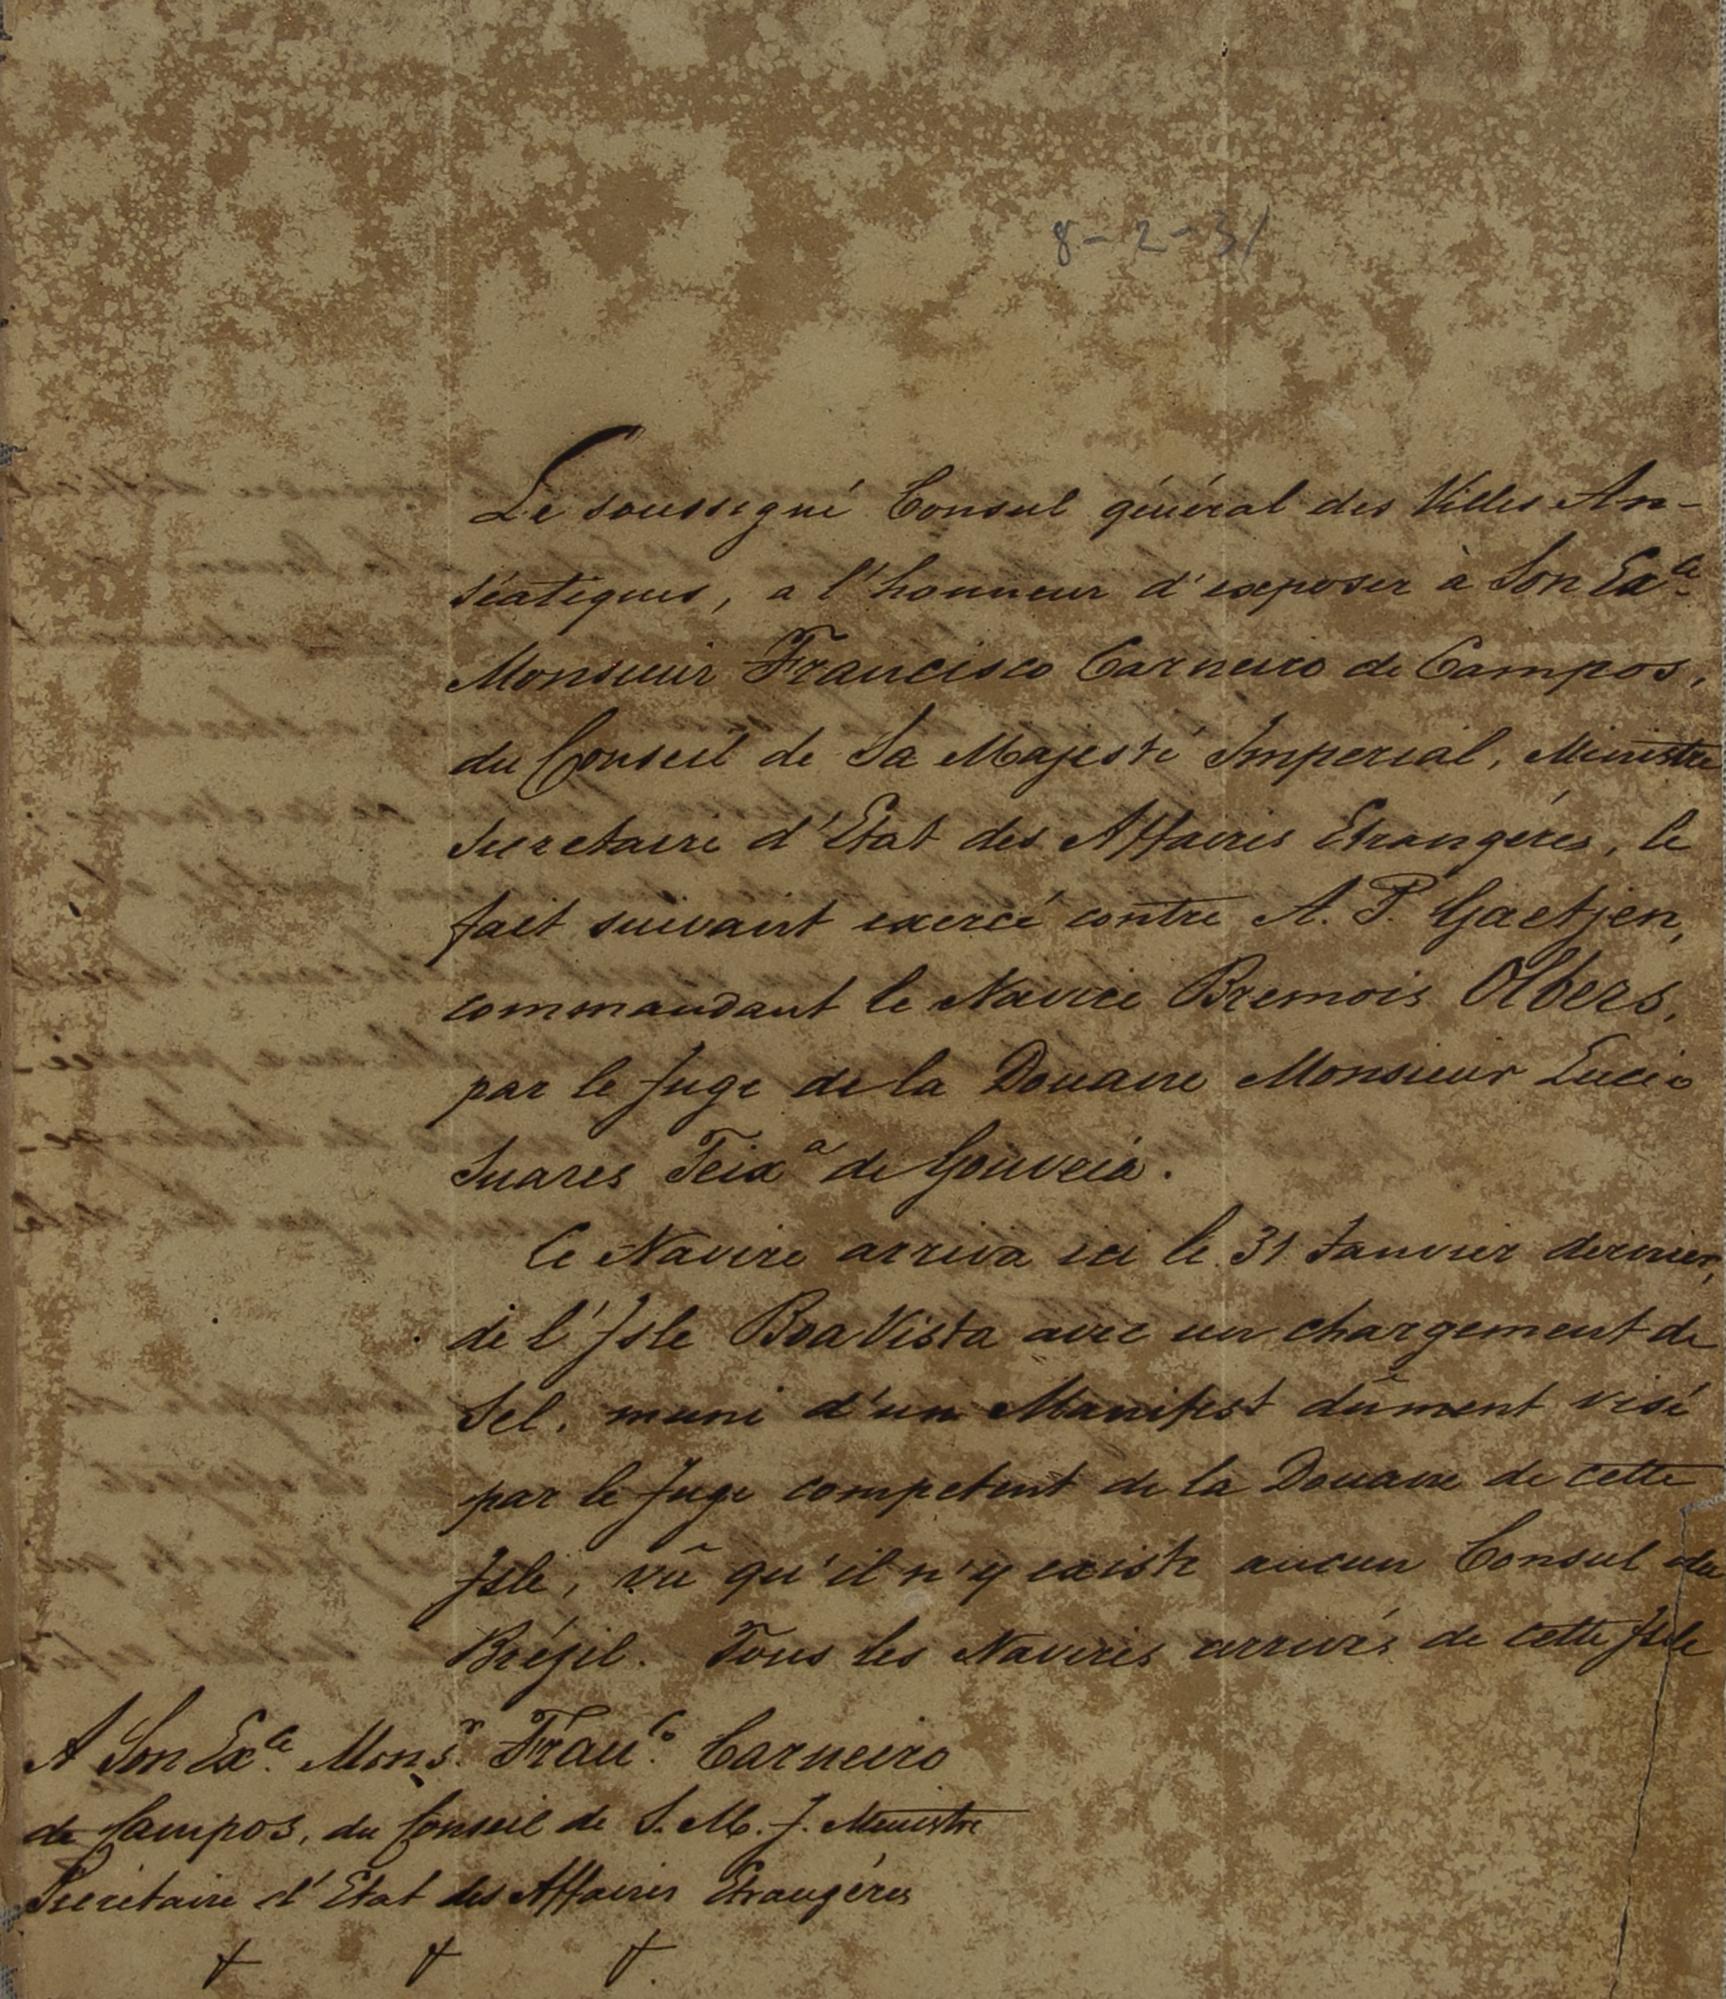 8-2-31
Le soussigné Consul général des Villes An-
séatiques, a l'honneur d'exposer à Son Ex.ce
Monsieur Francisco Carneiro de Campos,
du Conseil de Sa Majesté Imperial, Ministre
Secretaire d'Etat des Affaires Etrangéres, le
fait suivant exercé contre A. P. Gaetjen,
commandant le Navire Bremois Olbers,
par le Juge de la Douane Monsieur Lucio
Suares Teixa de Gouveia.
Ce Navire arriva ici le 31 Janvier dernier,
de l'Isle Boa Vista avec un chargement de
Sel, muni d'un Manifest dûment visé
par le Juge competent de la Douane de cette
Isle, vû qu'il n'y existe aucun Consul du
Brézil. Tous les Navires arrivés de cette Isle
A Son Ex.ce Mons.r Fran.co Carneiro
de Campos, du Conseil de S. M. I. Ministre
Secrétaire d'Etat des Affaires Etrangéres